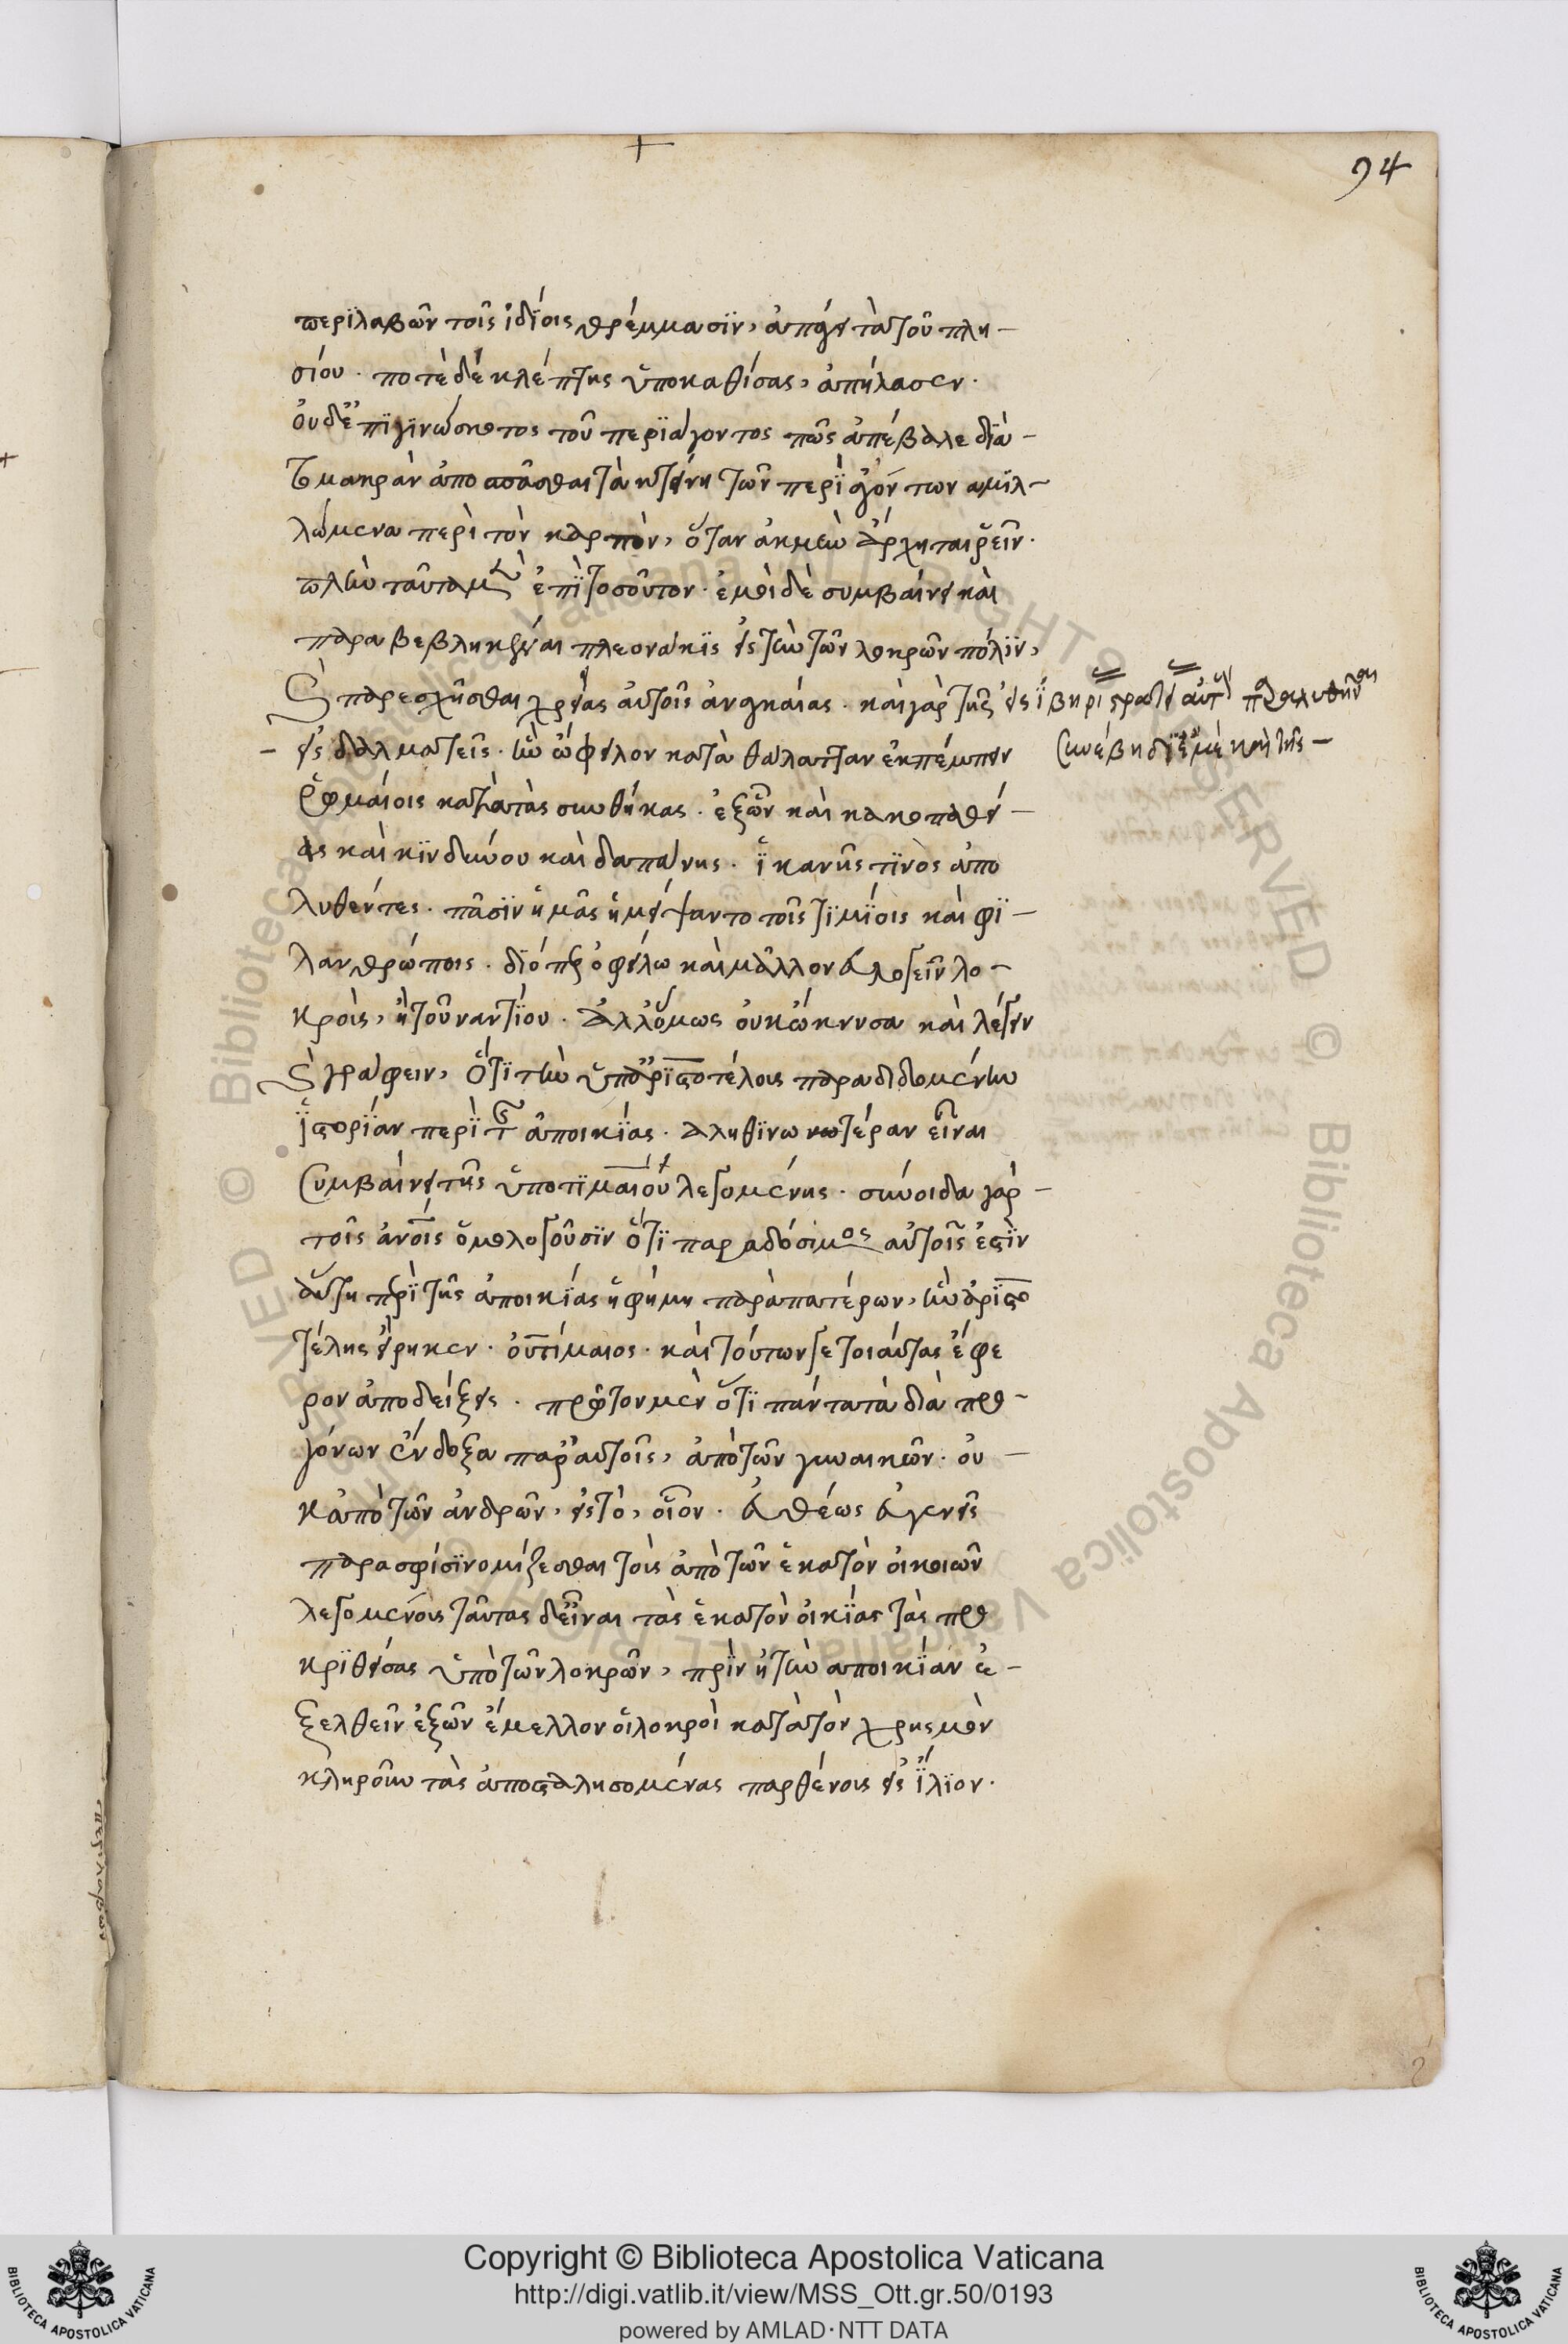 94
περϊλαβῶν τοῖς ἰδΐοις θρέμμασϊν, ἀπάγει τὰ τοῦ πλη-
σίου · ποτὲ δὲ κλέπτης ὑποκαθίσας, ἀπήλασεν ·
οὐδ' ἐπϊγϊνώσκοτος τοῦ περϊάγοντος πῶς ἀπέβαλε δϊὰ
τὸ μακρὰν ἀποσπᾶσθαι τὰ κτήνη τῶν περϊαγόντων αμϊλ-
λώμενα περὶ τὸν καρπὸν, ὅταν ἀκμὴν ἄρχηται ῥεῖν ·
πλὴν ταῦτα μὲν ἐπῒ τοσοῦτον · ἐμοὶ δὲ συμβαίνει καὶ
παραβεβληκέναι πλεονάκϊς εἰς τὴν τῶν λοκρῶν πόλϊν,
καὶ παρεσχῆσθαι χρείας αὐτοῖς ἀναγκαίας · καὶ γὰρ τῆς εἰς ἰβηρί στρατεί αὐτ παραλυθῆναι
εἰς δαλματεῖς · ἣν ὤφειλον κατὰ θάλατταν ἐκπέμπειν συνέβη δϊ' ἐμὲ καὶ τῆς
ῥωμαίοις κατὰ τὰς συνθήκας · ἐξ ὧν καὶ κακοπαθεί-
ας καὶ κϊνδύνου καὶ δαπάνης · ἱκανῆς τϊνὸς ἀπο
λυθέντες · πᾶσϊν ἡμᾶς ἠμείψαντο τοῖς τϊμΐοις καὶ φϊ-
λανθρώποις · δϊόπερ ὀφείλω καὶ μᾶλλον εὐλογεῖν λο-
κροὺς, ἢ τοὐναντΐον · ἀλλ' ὅμως οὐκ ὤκνησα καὶ λέγειν
καὶ γράφειν, ὅτϊ τὴν ὑπ' ἀρϊστοτέλους παραδιδομένην
ἱστορΐαν περῒ τῆς ἀποικΐας · ἀληθϊνωτέραν εἶναι
συμβαίνει τῆς ὑπὸ τϊμαίου λεγομένης · σύνοιδα γὰρ
τοῖς ἀνοις ὁμολογοῦσϊν ὅτϊ παραδόσιμος αὐτοῖς ἐστϊν
αὕτη περῒ τῆς ἀποικΐας ἡ φήμη παρὰ πατέρων, ἣν ἀρϊστο
τέλης εἴρηκεν · οὐ τίμαιος · καὶ τούτων γε τοιαύτας ἔφε
ρον ἀποδείξεις · πρῶτον μὲν ὅτϊ πάντα τὰ διὰ προ-
γόνων ἔνδοξα παρ' αὐτοῖς, ἀπὸ τῶν γυναικῶν · οὐ
κ ἀπὸ τῶν ἀνδρῶν, εἰς τὸ, οἷον · εὐθέως εὐγενεῖς
παρὰ σφίσϊ νομίζεσθαι τοὺς ἀπὸ τῶν ἑκατὸν οἰκιῶν
λεγομένους ταύτας δ' εἶναι τὰς ἑκατὸν οἰκΐας τὰς προ
κρϊθείσας ὑπὸ τῶν λοκρῶν, πρὶν ἢ τὴν αποικΐαν ἐ-
ξελθεῖν ἐξ ὧν ἔμελλον οἱ λοκροὶ κατὰ τὸν χρησμὸν
κληροῦν τὰς ἀποσταλησομένας παρθένους εἰς ἴλϊον ·
περιλαβὼν
Copyright © Biblioteca Apostolica Vaticana
http://digi.vatlib.it/view/MSS_Ott.gr.50/0193
powered by AMLAD·NTT DATA